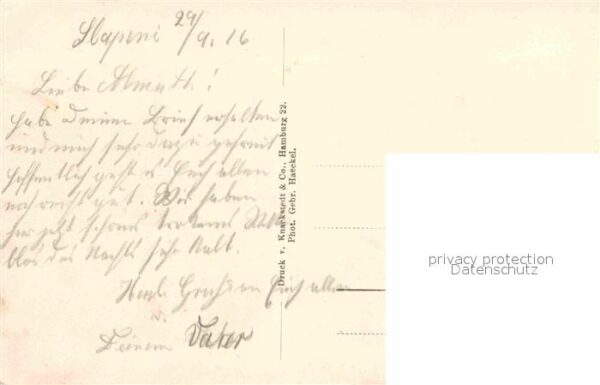 Slapeni 29/9. 16
Liebe Almuth!
habe Deinen Brief erhalten
und mich sehr dazu gefreut
hoffentlich geht es Euch allen
noch recht gut. Wir haben
hier jetzt schönes trockenes
blos des Nachts sehr kalt.
Viele Grüße an Euch allen
v.
Deinem Vater
Druck v. Knackstedt & Co., Hamburg 22.
Phot. Gebr. Haeckel.
privacy protection
Datenschutz